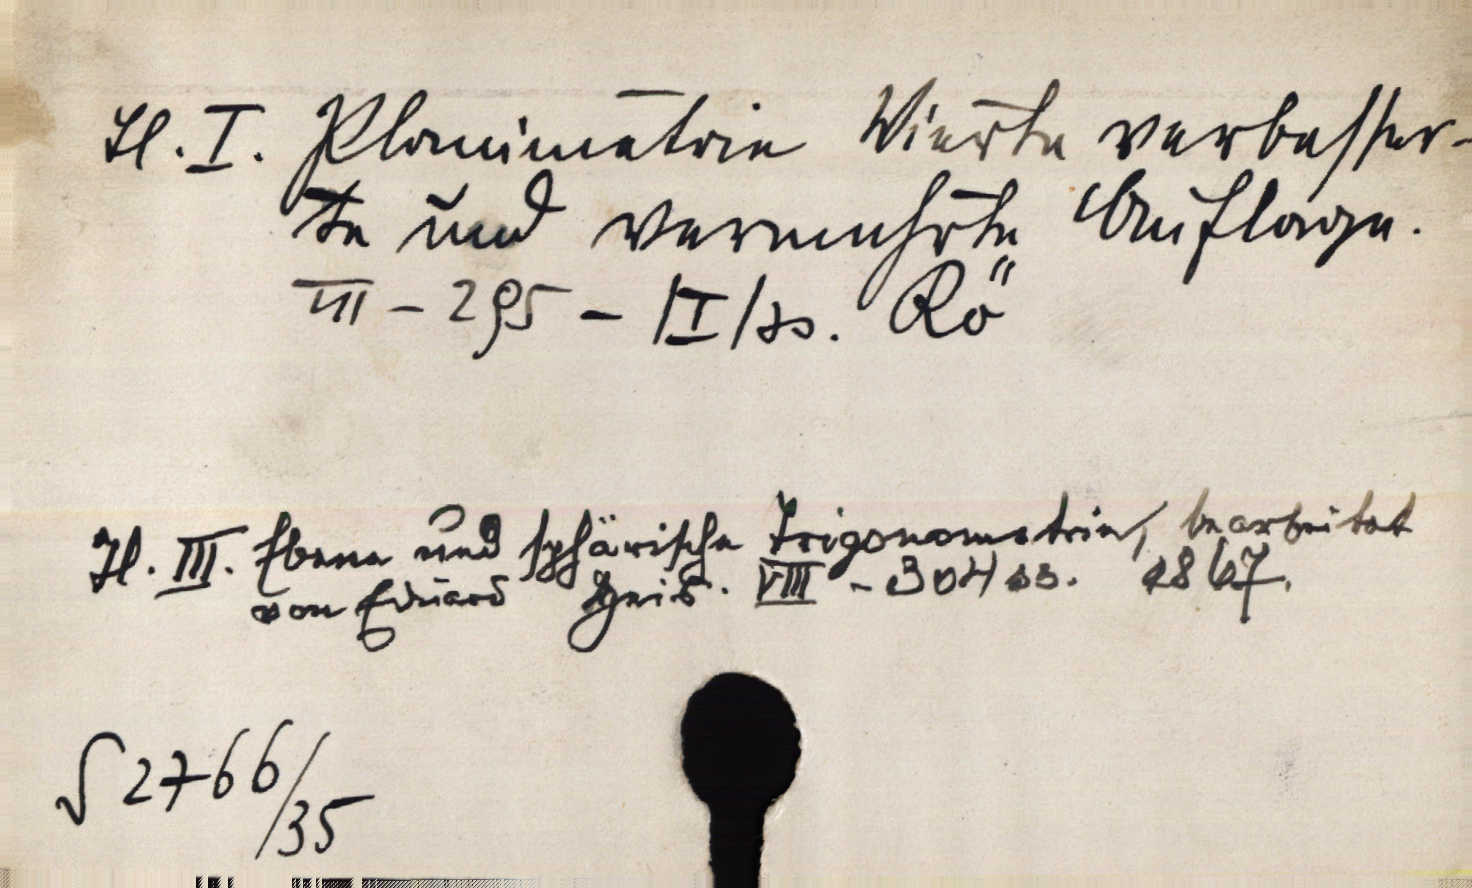 Tl. I. Planimetrie Vierte verbesser-
te und vermehrte Auflage.
VIII - 295 - |I| ss. Rö
Tl. III. Ebene und sphärische Trigonometrie, bearbeitet
von Eduard Heis. VIII - 304 ss. 1867.
2766/35